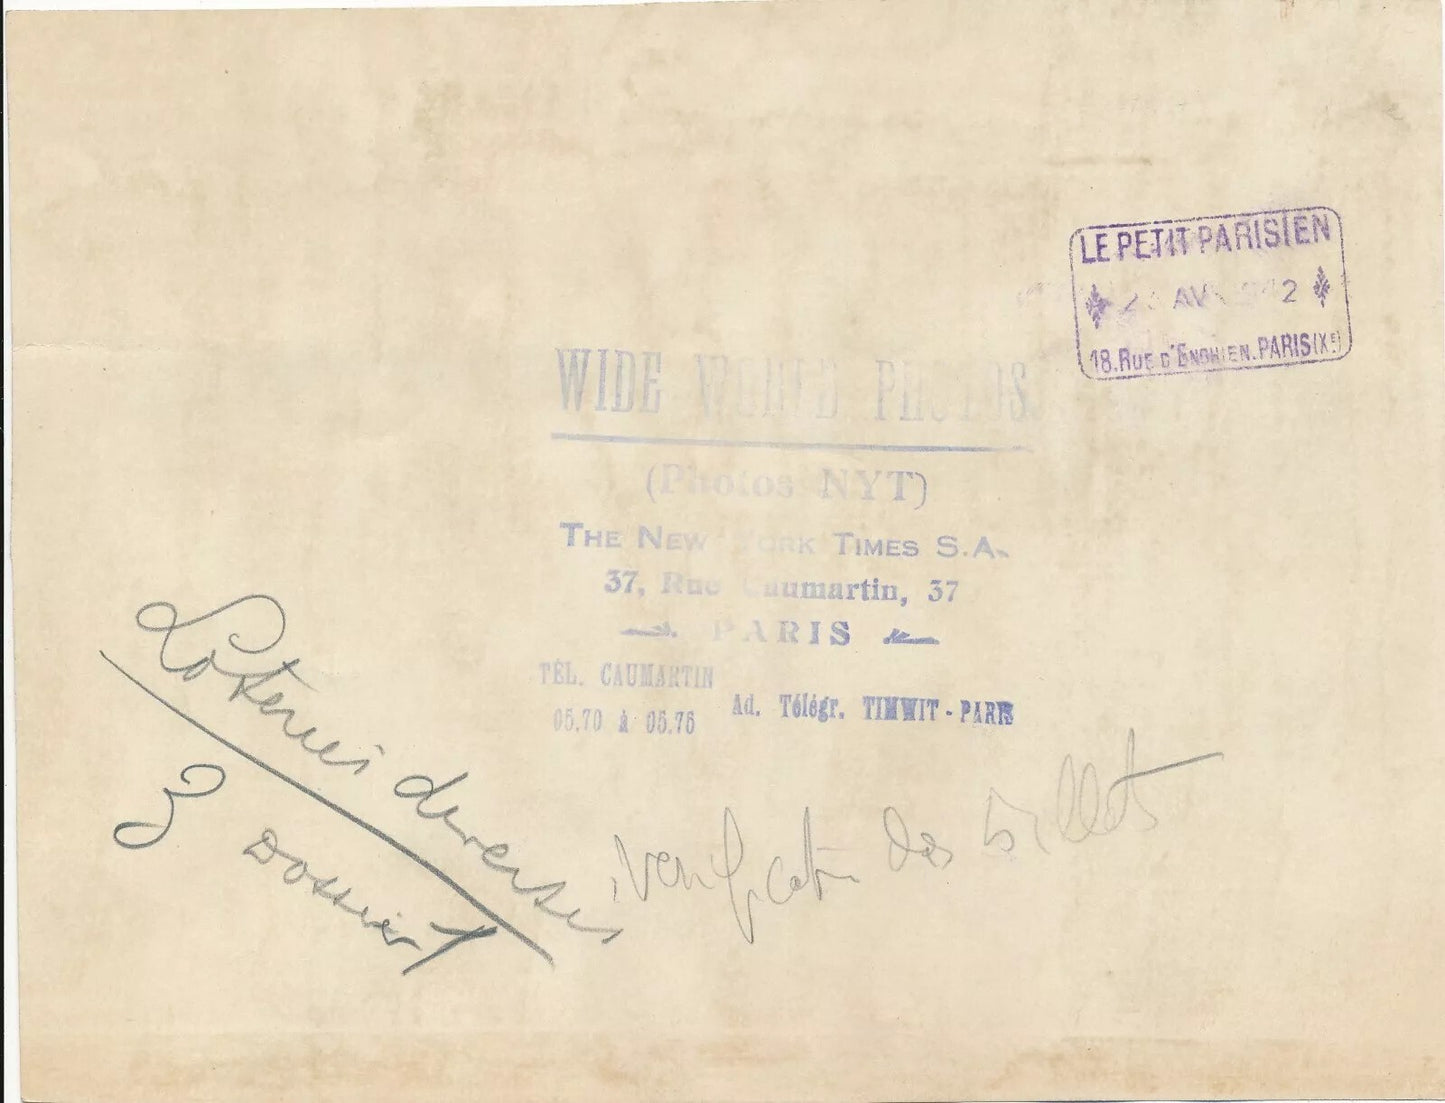 LE PETIT PARISIEN
AV 2
18. RUE D'ENGHIEN. PARIS (Xe)
WIDE WORLD PHOTOS
(Photos NYT)
THE NEW YORK TIMES S.A.
37, Rue Caumartin, 37
PARIS
TÉL. CAUMARTIN
05.70 à 05.76
Ad. Télégr. TIMWIT - PARIS
Loteries diverses
verification des billets
3 Dossier